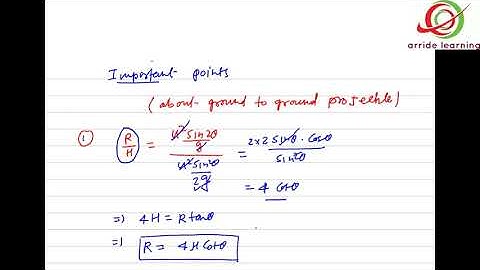 arride learning
Important points
(about ground to ground projectile)
① R/H = (u² sin2θ / g) / (u² sin²θ / 2g) = 2×2 sinθ · cosθ / sin²θ
= 4 cotθ
⇒ 4H = R tanθ
⇒ R = 4H cotθ